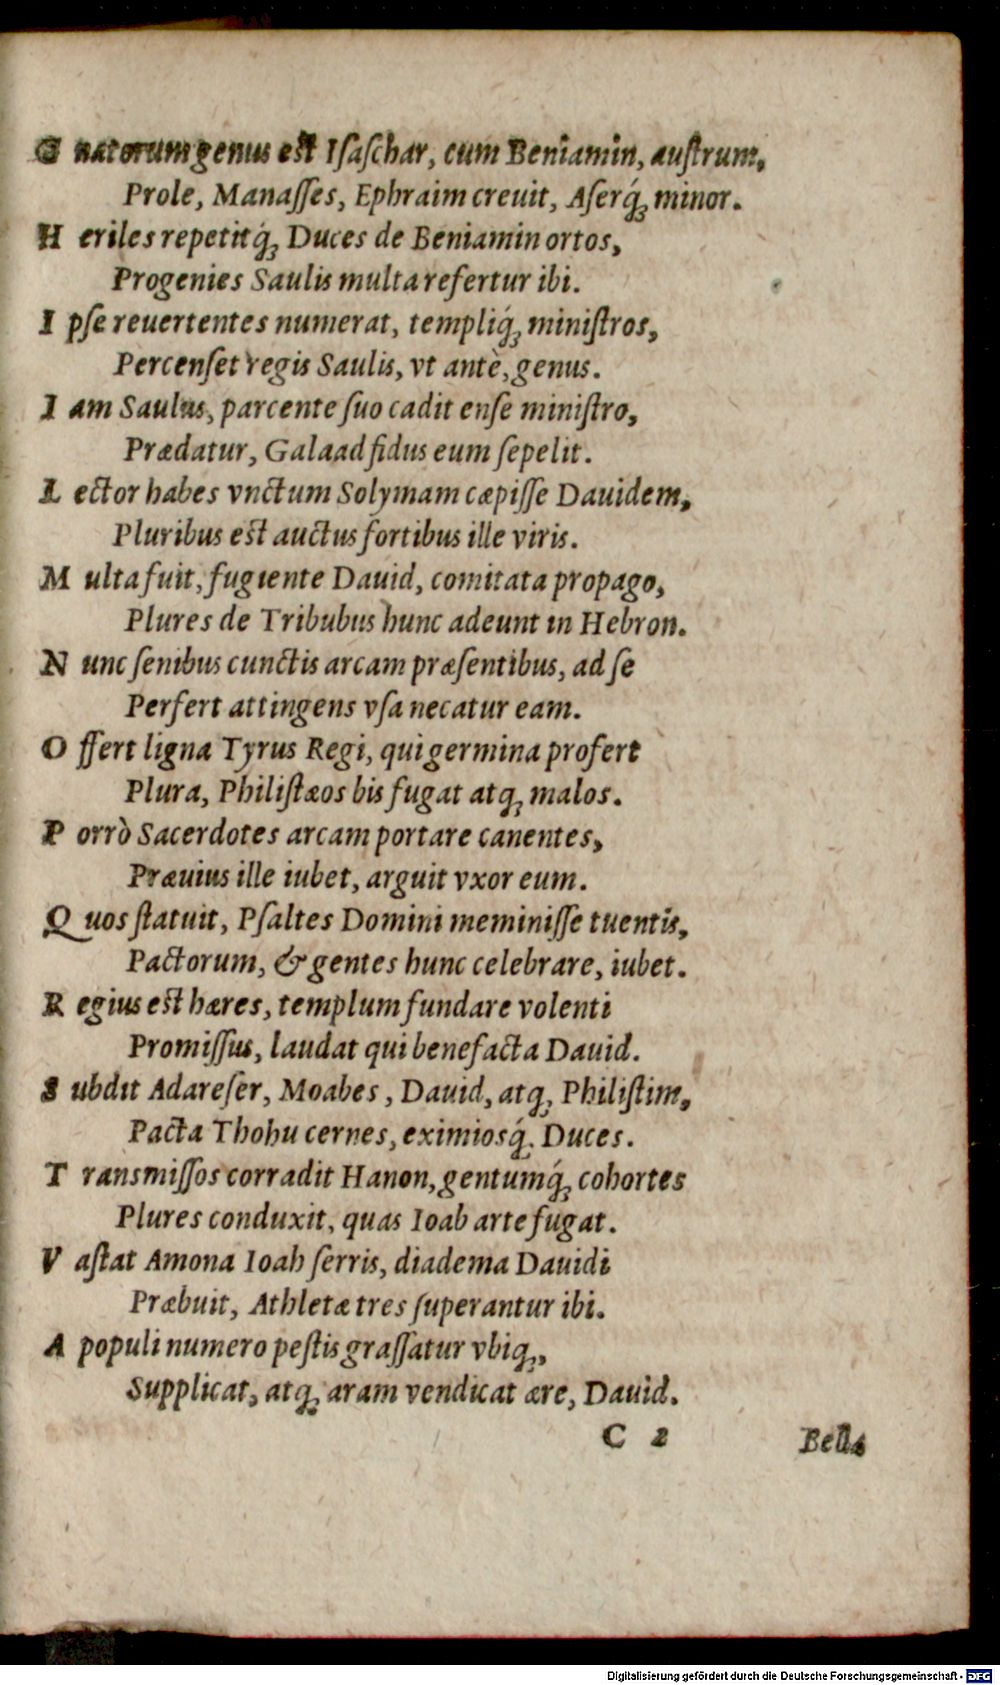 G natorum genus est Isaschar, cum Beniamin, austrum,
Prole, Manasses, Ephraim creuit, Aserq́; minor.
H eriles repetitq́; Duces de Beniamin ortos,
Progenies Saulis multa refertur ibi.
I pse reuertentes numerat, templiq́; ministros,
Percenset regis Saulis, vt antè, genus.
I am Saulus, parcente suo cadit ense ministro,
Prædatur, Galaad fidus eum sepelit.
L ector habes vnctum Solymam cæpisse Dauidem,
Pluribus est auctus fortibus ille viris.
M ulta fuit, fugiente Dauid, comitata propago,
Plures de Tribubus hunc adeunt in Hebron.
N unc senibus cunctis arcam præsentibus, ad se
Perfert attingens vsa necatur eam.
O ffert ligna Tyrus Regi, qui germina profert
Plura, Philistæos bis fugat atq; malos.
P orrò Sacerdotes arcam portare canentes,
Præuius ille iubet, arguit vxor eum.
Q uos statuit, Psaltes Domini meminisse tuentis,
Pactorum, & gentes hunc celebrare, iubet.
R egius est hæres, templum fundare volenti
Promissus, laudat qui benefacta Dauid.
S ubdit Adareser, Moabes, Dauid, atq; Philistim,
Pacta Thohu cernes, eximiosq́; Duces.
T ransmissos corradit Hanon, gentumq́; cohortes
Plures conduxit, quas Ioab arte fugat.
V astat Amona Ioab serris, diadema Dauidi
Præbuit, Athletæ tres superantur ibi.
A populi numero pestis grassatur vbiq;,
Supplicat, atq; aram vendicat ære, Dauid.
C 2 Bella
Digitalisierung gefördert durch die Deutsche Forschungsgemeinschaft - DFG